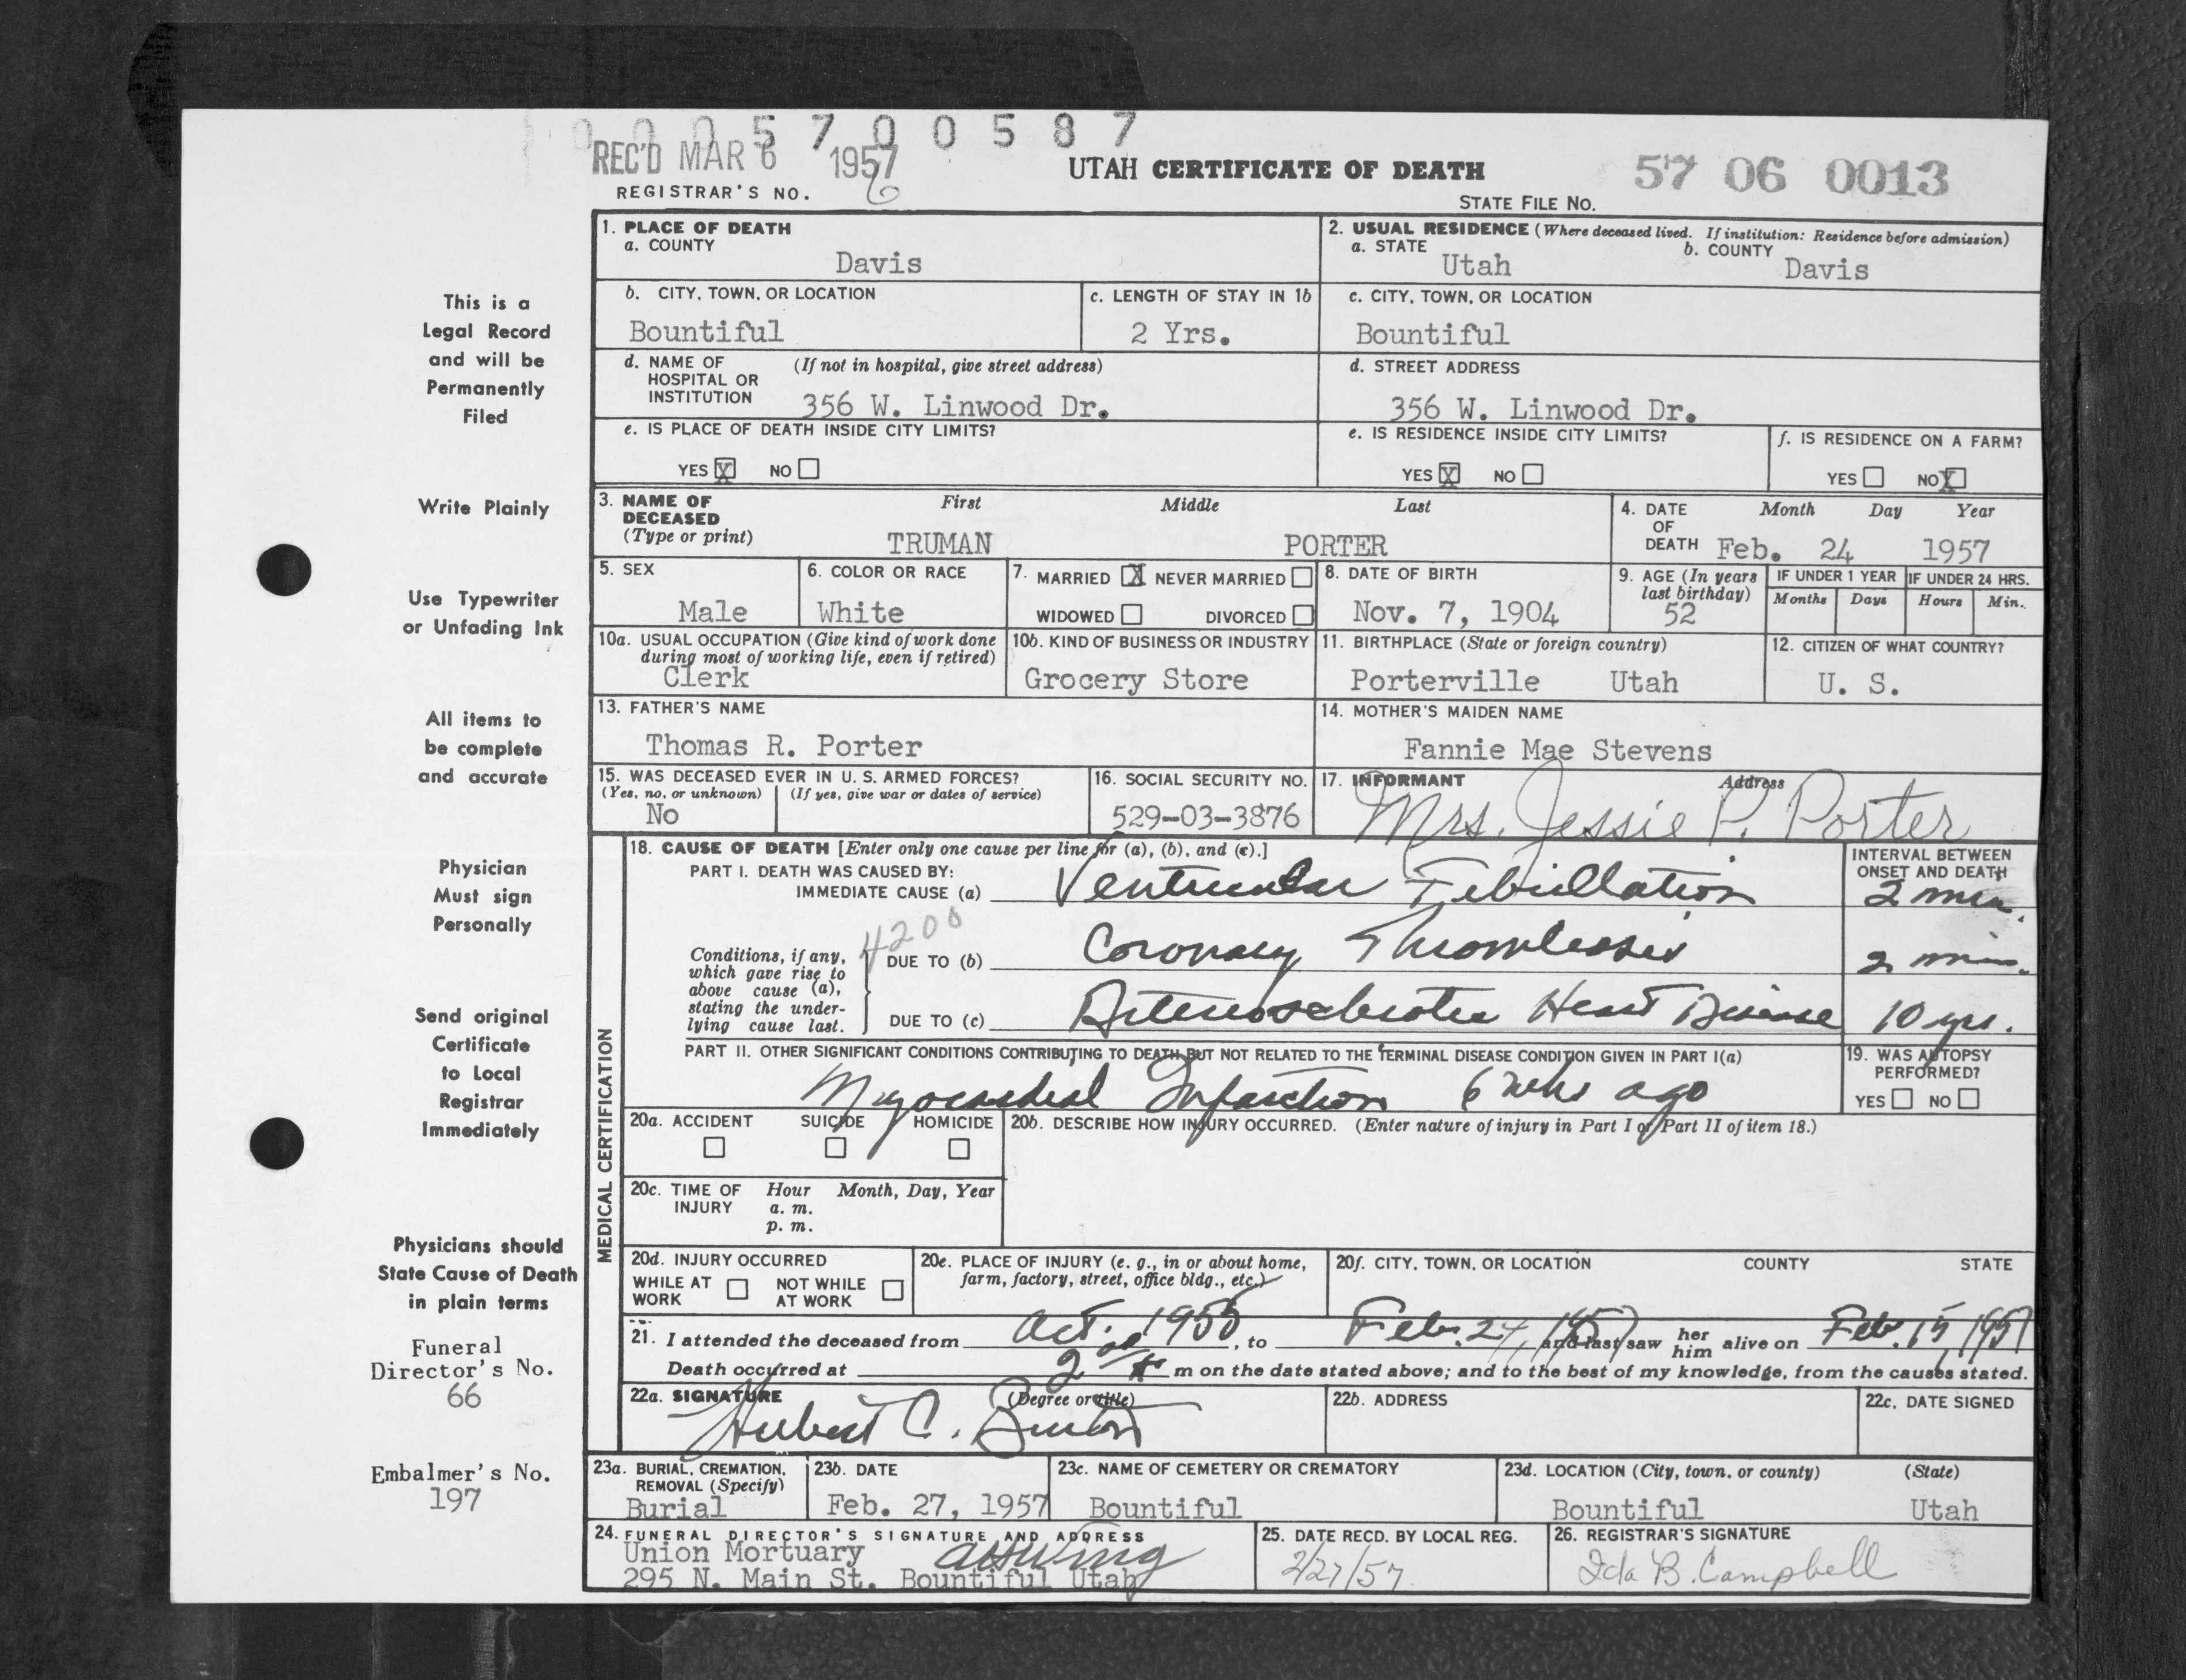 0 0 0 5 7 0 0 5 8 7
REC'D MAR 6 1957
UTAH CERTIFICATE OF DEATH
57 06 0013
REGISTRAR'S NO. 6
STATE FILE NO.
1. PLACE OF DEATH
a. COUNTY
Davis
2. USUAL RESIDENCE (Where deceased lived. If institution: Residence before admission)
a. STATE
Utah
b. COUNTY
Davis
b. CITY, TOWN, OR LOCATION
Bountiful
c. LENGTH OF STAY IN 1b
2 Yrs.
c. CITY, TOWN, OR LOCATION
Bountiful
d. NAME OF HOSPITAL OR INSTITUTION
(If not in hospital, give street address)
356 W. Linwood Dr.
d. STREET ADDRESS
356 W. Linwood Dr.
e. IS PLACE OF DEATH INSIDE CITY LIMITS?
YES X NO
e. IS RESIDENCE INSIDE CITY LIMITS?
YES X NO
f. IS RESIDENCE ON A FARM?
YES NO X
3. NAME OF DECEASED (Type or print)
First Middle Last
TRUMAN PORTER
4. DATE OF DEATH
Month Day Year
Feb. 24 1957
5. SEX
Male
6. COLOR OR RACE
White
7. MARRIED X NEVER MARRIED
WIDOWED DIVORCED
8. DATE OF BIRTH
Nov. 7, 1904
9. AGE (In years last birthday)
52
IF UNDER 1 YEAR
Months Days
IF UNDER 24 HRS.
Hours Min.
10a. USUAL OCCUPATION (Give kind of work done during most of working life, even if retired)
Clerk
10b. KIND OF BUSINESS OR INDUSTRY
Grocery Store
11. BIRTHPLACE (State or foreign country)
Porterville Utah
12. CITIZEN OF WHAT COUNTRY?
U. S.
13. FATHER'S NAME
Thomas R. Porter
14. MOTHER'S MAIDEN NAME
Fannie Mae Stevens
15. WAS DECEASED EVER IN U. S. ARMED FORCES?
(Yes, no, or unknown) (If yes, give war or dates of service)
No
16. SOCIAL SECURITY NO.
529-03-3876
17. INFORMANT Address
Mrs. Jessie P. Porter
MEDICAL CERTIFICATION
18. CAUSE OF DEATH [Enter only one cause per line for (a), (b), and (c).]
INTERVAL BETWEEN ONSET AND DEATH
PART I. DEATH WAS CAUSED BY:
IMMEDIATE CAUSE (a) Ventricular Fibrillation 2 min.
4200
Conditions, if any, which gave rise to above cause (a), stating the underlying cause last.
DUE TO (b) Coronary Thrombosis 2 min.
DUE TO (c) Arteriosclerotic Heart Disease 10 yrs.
PART II. OTHER SIGNIFICANT CONDITIONS CONTRIBUTING TO DEATH BUT NOT RELATED TO THE TERMINAL DISEASE CONDITION GIVEN IN PART I(a)
Myocardial Infarction 6 wks ago
19. WAS AUTOPSY PERFORMED?
YES NO
20a. ACCIDENT SUICIDE HOMICIDE
20b. DESCRIBE HOW INJURY OCCURRED. (Enter nature of injury in Part I or Part II of item 18.)
20c. TIME OF INJURY
Hour Month, Day, Year
a. m.
p. m.
20d. INJURY OCCURRED
WHILE AT WORK NOT WHILE AT WORK
20e. PLACE OF INJURY (e. g., in or about home, farm, factory, street, office bldg., etc.)
20f. CITY, TOWN, OR LOCATION COUNTY STATE
21. I attended the deceased from Oct. 1955, to Feb. 24, 1957 and last saw her him alive on Feb. 15, 1957
Death occurred at 2 m on the date stated above; and to the best of my knowledge, from the causes stated.
22a. SIGNATURE (Degree or title)
Hubert C.
22b. ADDRESS
22c. DATE SIGNED
23a. BURIAL, CREMATION, REMOVAL (Specify)
Burial
23b. DATE
Feb. 27, 1957
23c. NAME OF CEMETERY OR CREMATORY
Bountiful
23d. LOCATION (City, town, or county) (State)
Bountiful Utah
24. FUNERAL DIRECTOR'S SIGNATURE AND ADDRESS
Union Mortuary
295 N. Main St. Bountiful Utah
25. DATE RECD. BY LOCAL REG.
2/27/57
26. REGISTRAR'S SIGNATURE
Ida B. Campbell
This is a
Legal Record
and will be
Permanently
Filed
Write Plainly
Use Typewriter
or Unfading Ink
All items to
be complete
and accurate
Physician
Must sign
Personally
Send original
Certificate
to Local
Registrar
Immediately
Physicians should
State Cause of Death
in plain terms
Funeral
Director's No.
66
Embalmer's No.
197